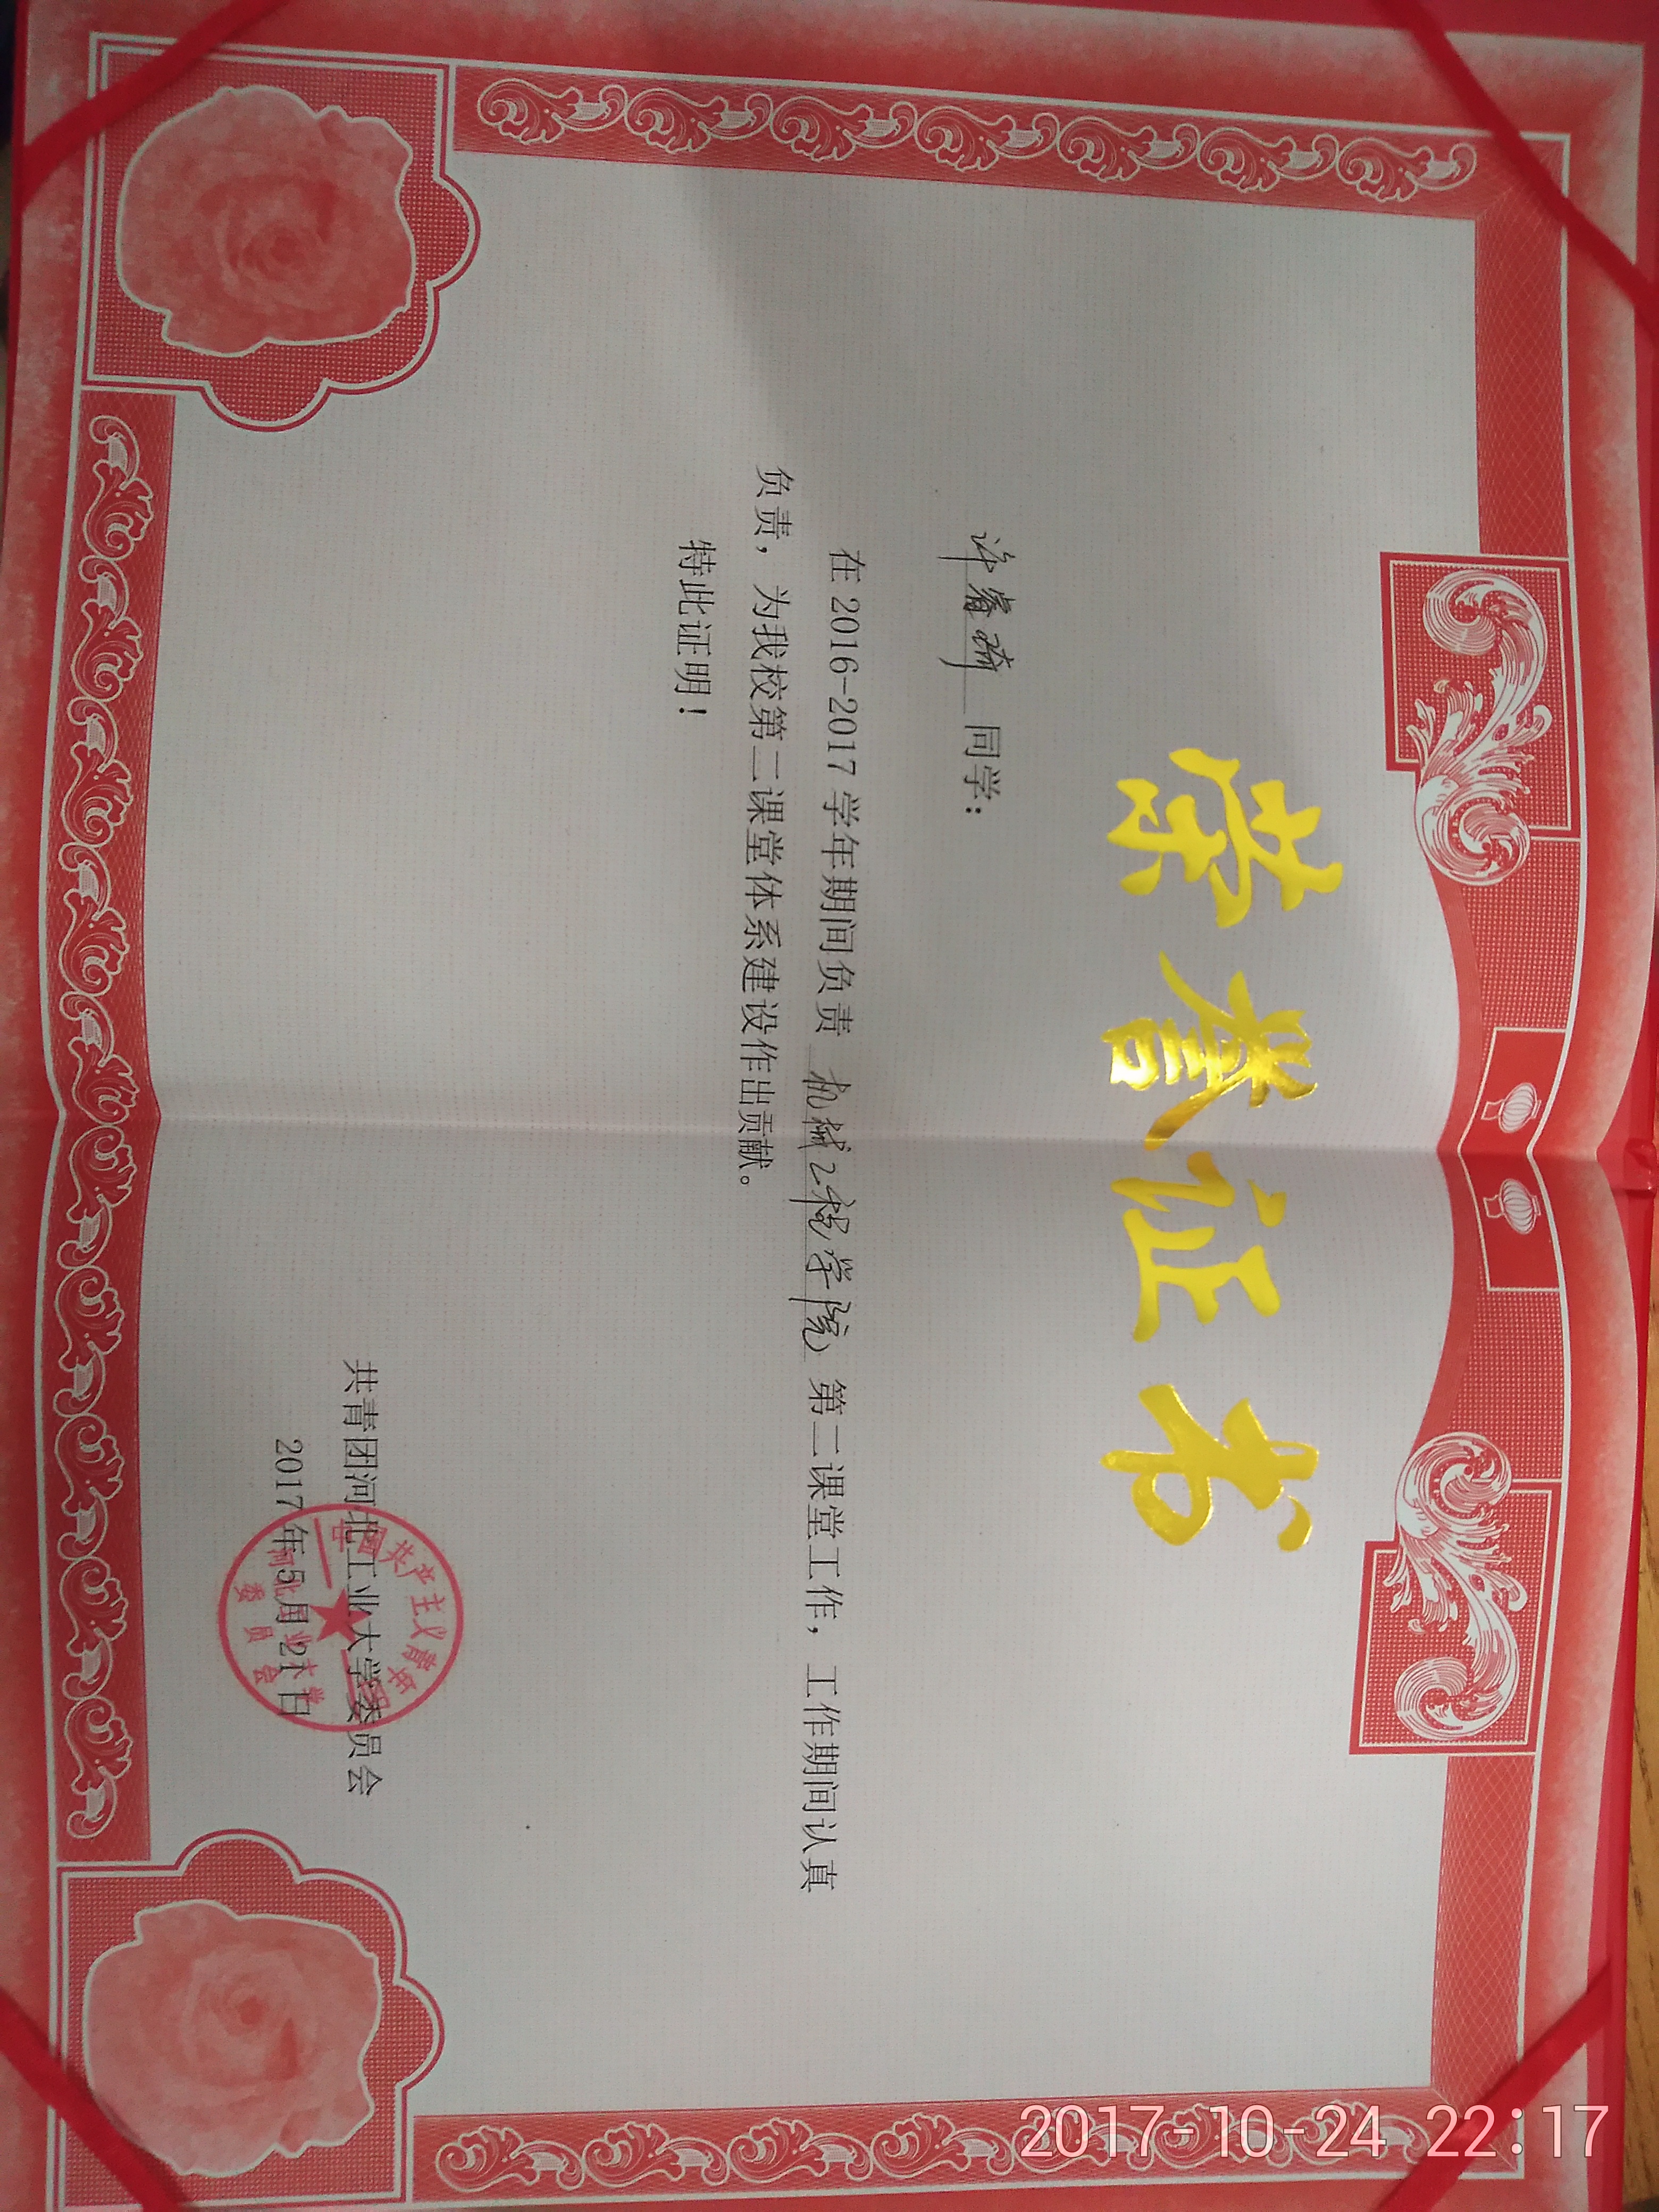 荣誉证书
许睿琦 同学：
在 2016-2017 学年期间负责 机械工程学院 第二课堂工作，工作期间认真
负责，为我校第二课堂体系建设作出贡献。
特此证明！
共青团河北工业大学委员会
2017 年 5 月 21 日
中国共产主义青年团
河北工业大学
委员会
2017-10-24 22:17